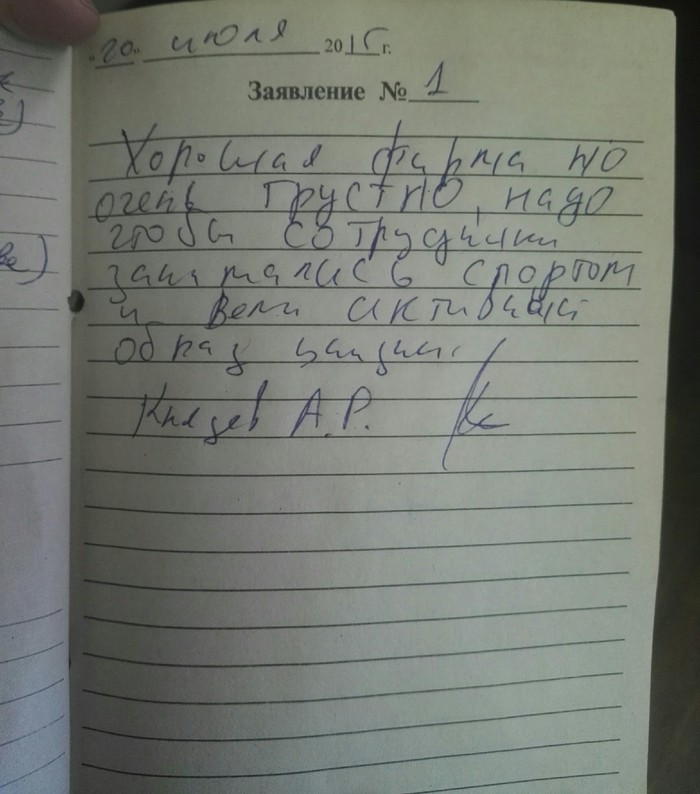 "20" июля 2015 г.
Заявление № 1
Хорошая фирма но
очень грустно, надо
чтобы сотрудники
занимались спортом
и вели активный
образ жизни.
Князев А.Р.